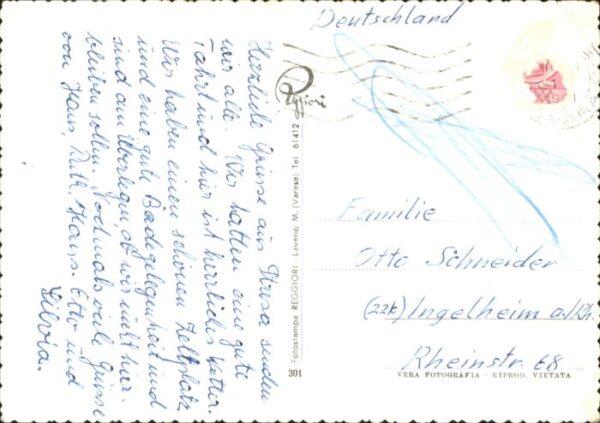 Herzliche Grüsse aus Stresa senden
wir alle. Wir hatten eine gute
Fahrt und hier ist herrliches Wetter.
Wir haben einen schönen Zeltplatz
und eine gute Badegelegenheit und
sind am Überlegen, ob wir nicht hier
bleiben sollen. Nochmals viele Grüsse
von Hans, Ruth, Hans-Otto und
Silvia.
Reggiori
Fotostampa REGGIORI - Laveno M. (Varese) Tel. 61412
301
Deutschland
Familie
Otto Schneider
(22b) Ingelheim a/Rh.
Rheinstr. 68
VERA FOTOGRAFIA - RIPROD. VIETATA